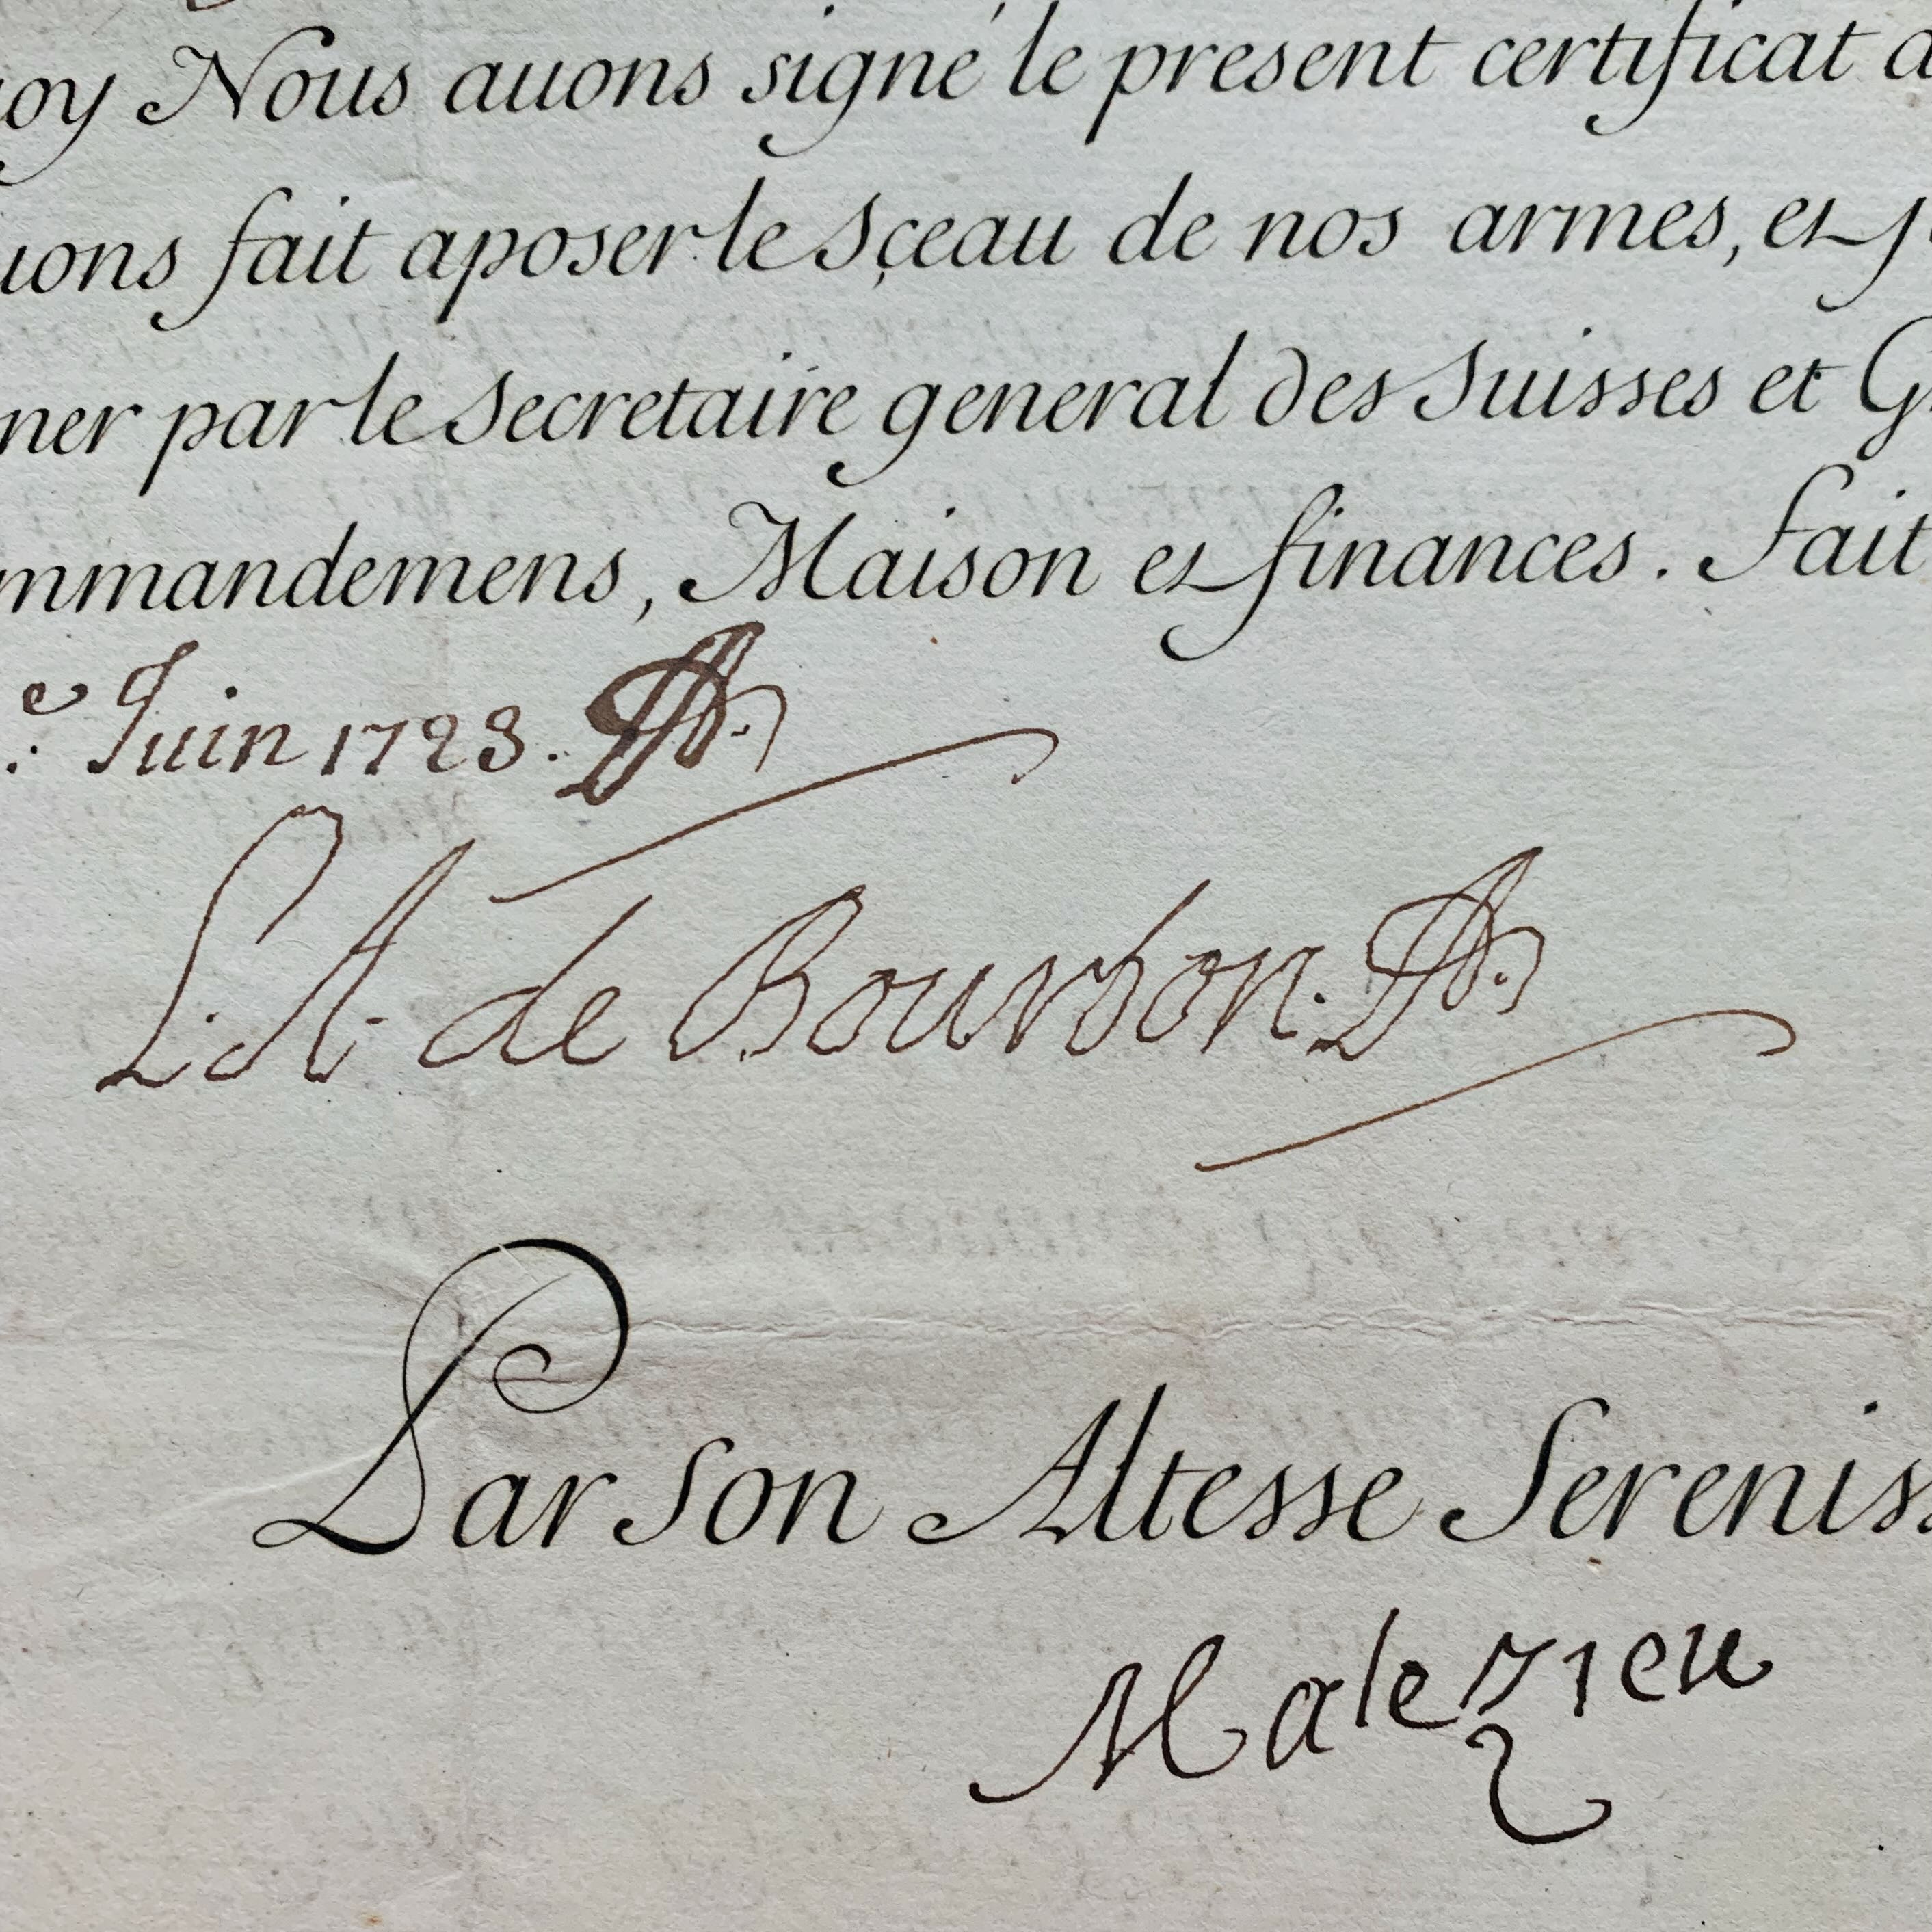 oy Nous auons signé le present certificat
uons fait aposer le Sçeau de nos armes, et
ner par le Secretaire general des Suisses et G
mmandemens, Maison et finances. Fait
e Juin 1723.
L. A. de Bourbon.
Par Son Altesse Sereniss
Malezieu